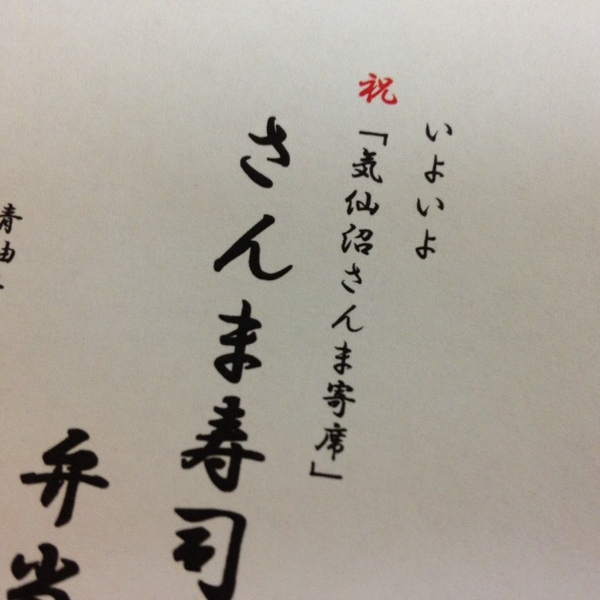 いよいよ
祝「気仙沼さんま寄席」
さんま寿司
弁当